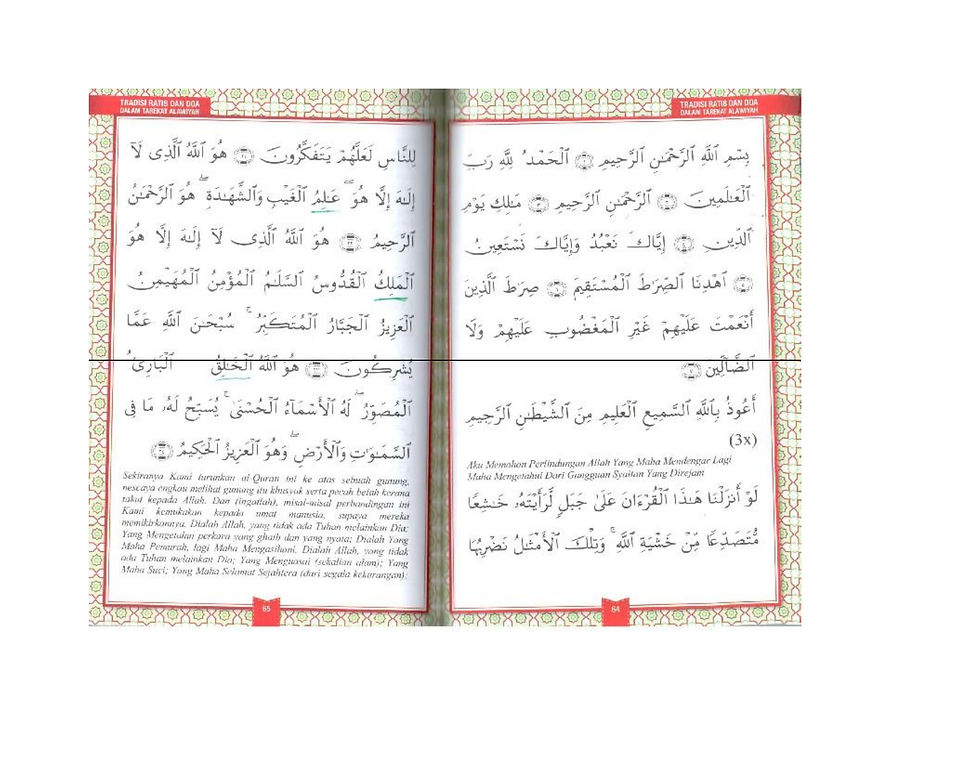 TRADISI RATIB DAN DOA
DALAM TAREKAT ALAWIYAH
بِسْمِ ٱللَّهِ ٱلرَّحْمَٰنِ ٱلرَّحِيمِ ۝١ ٱلْحَمْدُ لِلَّهِ رَبِّ
ٱلْعَٰلَمِينَ ۝٢ ٱلرَّحْمَٰنِ ٱلرَّحِيمِ ۝٣ مَٰلِكِ يَوْمِ
ٱلدِّينِ ۝٤ إِيَّاكَ نَعْبُدُ وَإِيَّاكَ نَسْتَعِينُ
۝٥ ٱهْدِنَا ٱلصِّرَٰطَ ٱلْمُسْتَقِيمَ ۝٦ صِرَٰطَ ٱلَّذِينَ
أَنْعَمْتَ عَلَيْهِمْ غَيْرِ ٱلْمَغْضُوبِ عَلَيْهِمْ وَلَا
ٱلضَّآلِّينَ ۝٧
أَعُوذُ بِٱللَّهِ ٱلسَّمِيعِ ٱلْعَلِيمِ مِنَ ٱلشَّيْطَٰنِ ٱلرَّجِيمِ
(3x)
Aku Memohon Perlindungan Allah Yang Maha Mendengar Lagi
Maha Mengetahui Dari Gangguan Syaitan Yang Direjam
لَوْ أَنزَلْنَا هَٰذَا ٱلْقُرْءَانَ عَلَىٰ جَبَلٍ لَّرَأَيْتَهُۥ خَٰشِعًا
مُّتَصَدِّعًا مِّنْ خَشْيَةِ ٱللَّهِ ۚ وَتِلْكَ ٱلْأَمْثَٰلُ نَضْرِبُهَا
64
TRADISI RATIB DAN DOA
DALAM TAREKAT ALAWIYAH
لِلنَّاسِ لَعَلَّهُمْ يَتَفَكَّرُونَ ۝٢١ هُوَ ٱللَّهُ ٱلَّذِى لَآ
إِلَٰهَ إِلَّا هُوَ ۖ عَٰلِمُ ٱلْغَيْبِ وَٱلشَّهَٰدَةِ ۖ هُوَ ٱلرَّحْمَٰنُ
ٱلرَّحِيمُ ۝٢٢ هُوَ ٱللَّهُ ٱلَّذِى لَآ إِلَٰهَ إِلَّا هُوَ
ٱلْمَلِكُ ٱلْقُدُّوسُ ٱلسَّلَٰمُ ٱلْمُؤْمِنُ ٱلْمُهَيْمِنُ
ٱلْعَزِيزُ ٱلْجَبَّارُ ٱلْمُتَكَبِّرُ ۚ سُبْحَٰنَ ٱللَّهِ عَمَّا
يُشْرِكُونَ ۝٢٣ هُوَ ٱللَّهُ ٱلْخَٰلِقُ ٱلْبَارِئُ
ٱلْمُصَوِّرُ ۖ لَهُ ٱلْأَسْمَآءُ ٱلْحُسْنَىٰ ۚ يُسَبِّحُ لَهُۥ مَا فِى
ٱلسَّمَٰوَٰتِ وَٱلْأَرْضِ ۖ وَهُوَ ٱلْعَزِيزُ ٱلْحَكِيمُ ۝٢٤
Sekiranya Kami turunkan al-Quran ini ke atas sebuah gunung,
nescaya engkau melihat gunung itu khusyuk serta pecah belah kerana
takut kepada Allah. Dan (ingatlah), misal-misal perbandingan ini
Kami kemukakan kepada umat manusia, supaya mereka
memikirkannya. Dialah Allah, yang tidak ada Tuhan melainkan Dia;
Yang Mengetahui perkara yang ghaib dan yang nyata; Dialah Yang
Maha Pemurah, lagi Maha Mengasihani. Dialah Allah, yang tidak
ada Tuhan melainkan Dia; Yang Menguasai (sekalian alam); Yang
Maha Suci; Yang Maha Selamat Sejahtera (dari segala kekurangan);
65